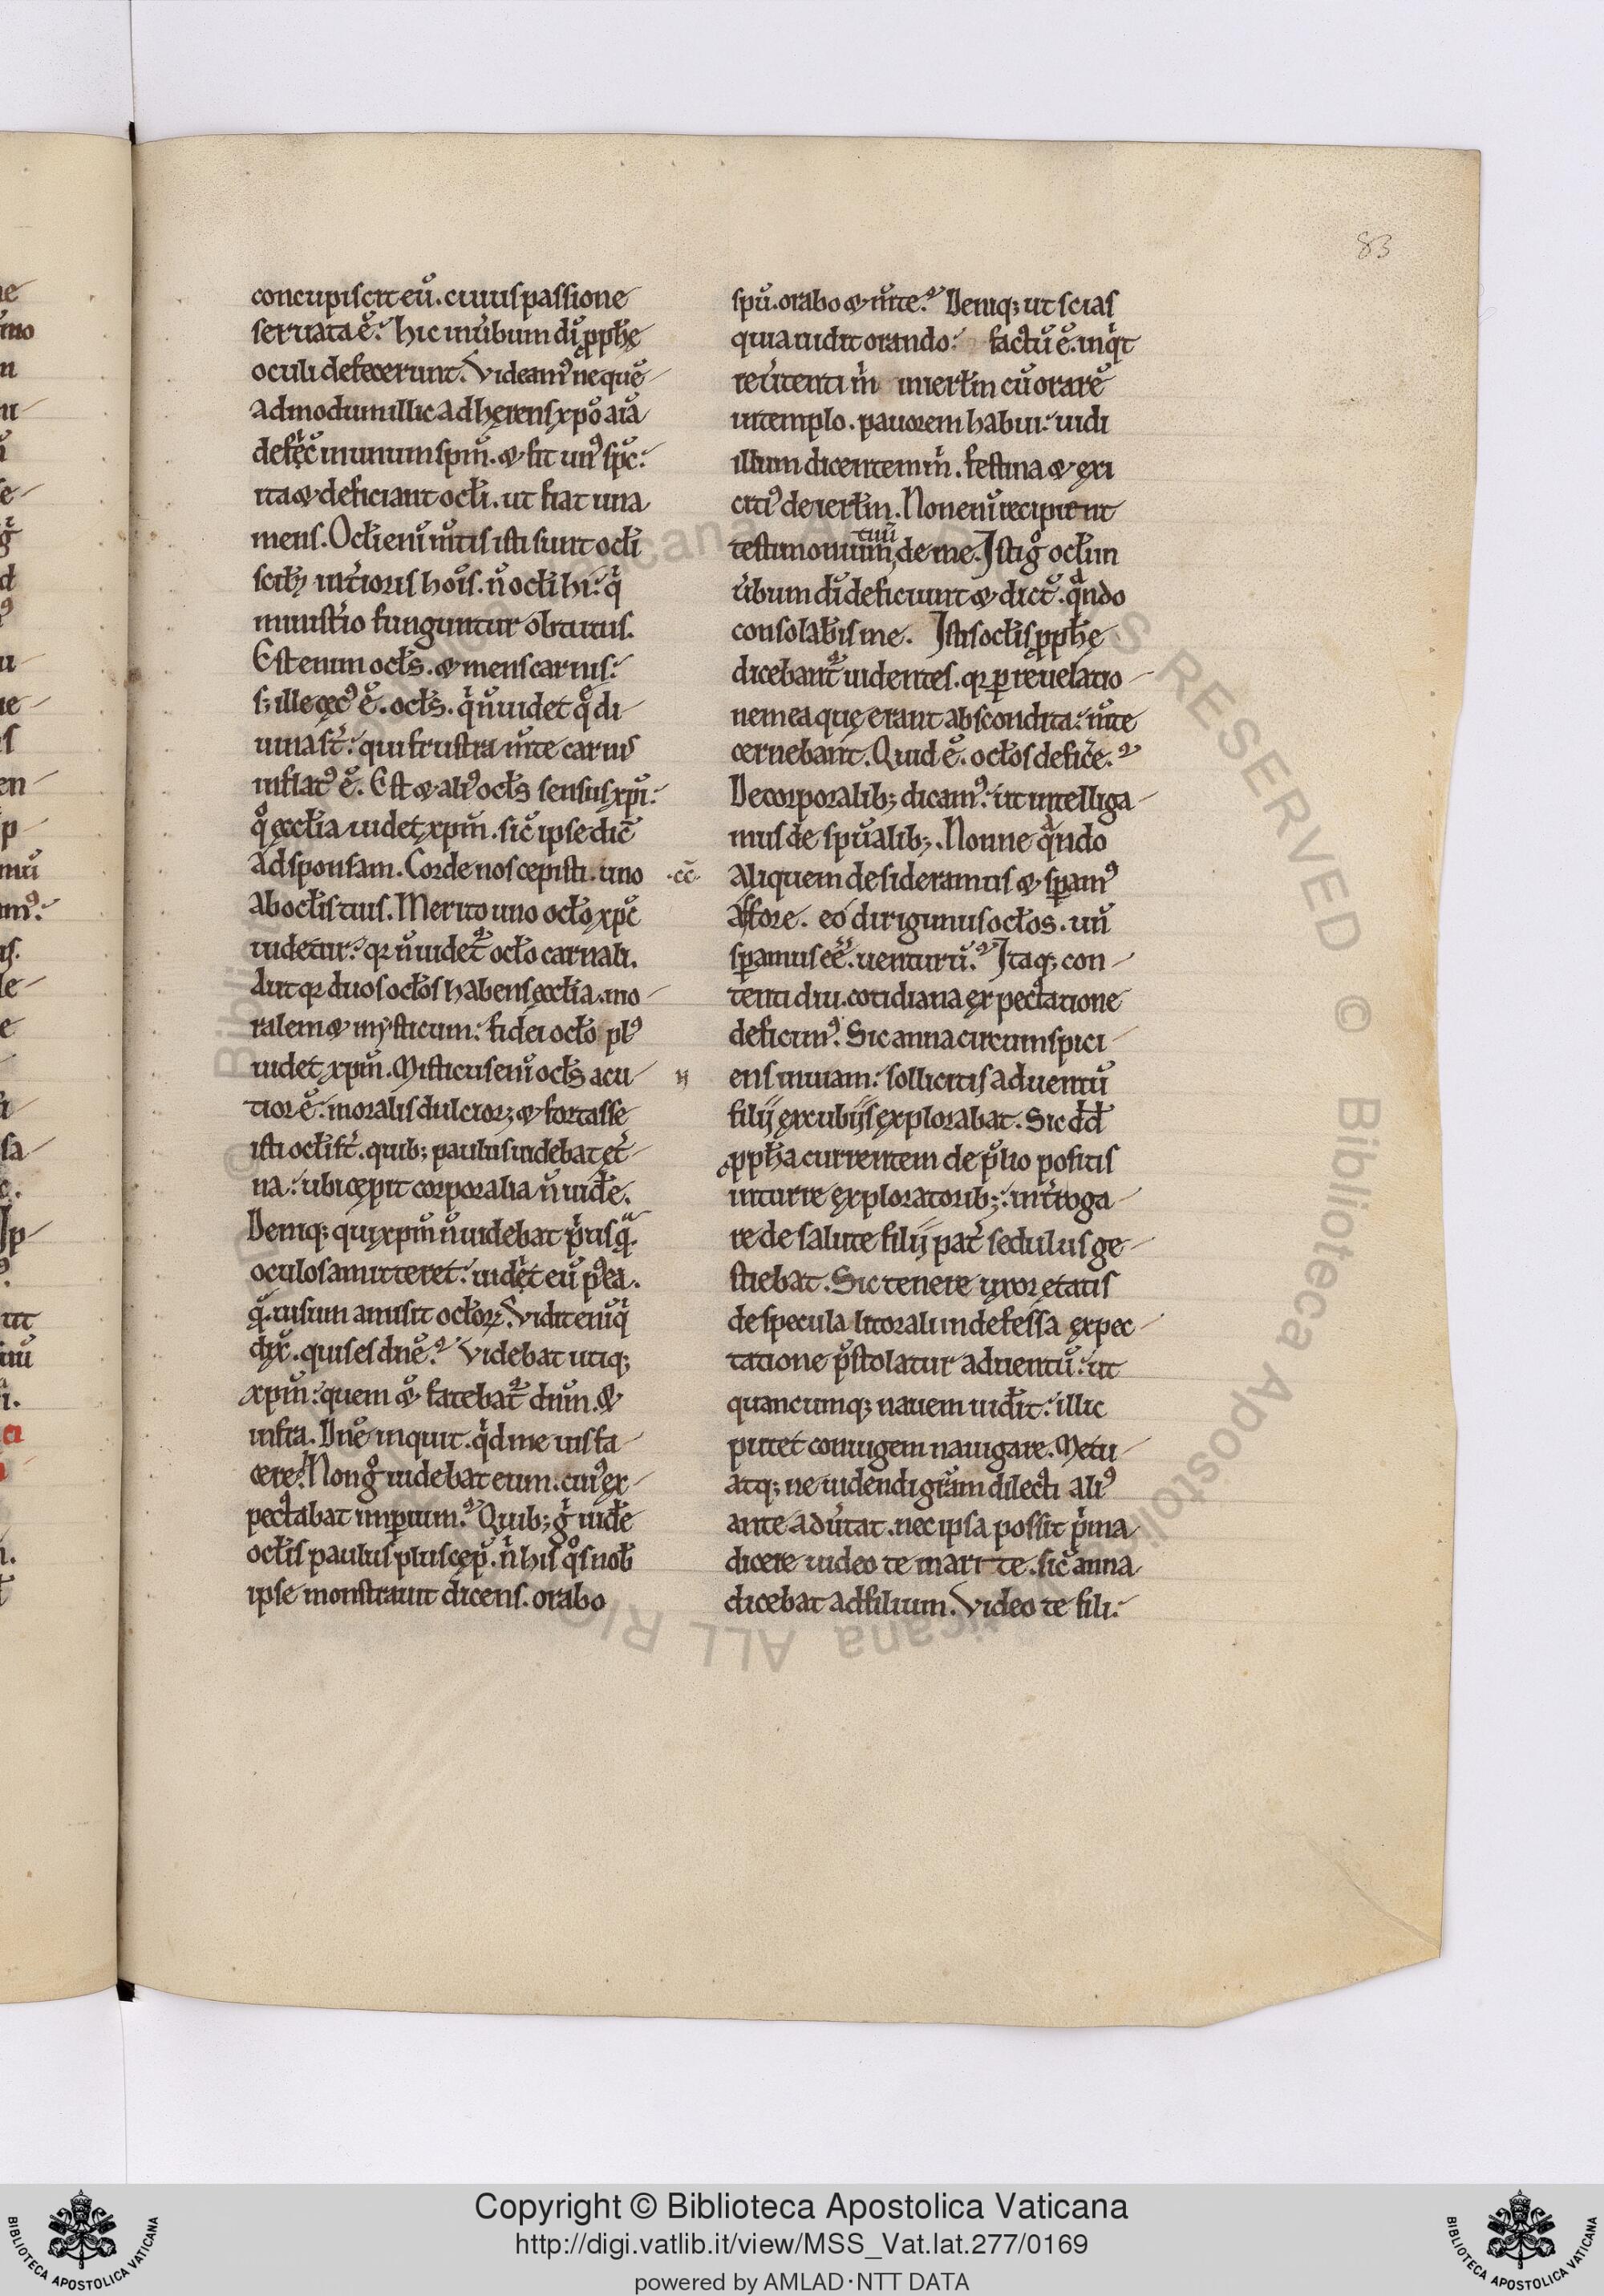 83
concupiscit eū. cuius passione
seruata ē. hic in u̅bum dī ꝓph̅ę
oculi defecerunt. Videam᷒ ne quē
admodum illic adherens xp̅o aīa
defęc̅ in unum sp̅m. & fit un᷒ sp̅c.
ita & deficiant ocl̅i. ut fiat una
mens. Ocl̅i eni̅ m̅tis isti sunt ocl̅i
scil̅ꝫ int̅ioris ho̅is. n̅ ocl̅i hi. qͥ
minist̅io funguntur obtutus.
Est enim ocl̅s. & mens carnis.
sꝫ ille cęc᷒ ē. ocl̅s. qͥ n̅ uidet qͦ̅ di
uina st̅. qui frustra m̅te carnis
inflat᷒ ē. Est & ali᷒ ocl̅s sensus xp̅i.
qͦ ęccl̅ia uidet xp̅m. sic̅ ipse dic̅
ad sponsam. Corde nos cepisti. uno
ab ocl̅is tuis. Merito uno ocl̅o xp̅c
uidetur. qꝛ n̅ uidet᷑ ocl̅o carnali.
Aut qꝛ duos ocl̅os habens ęccl̅ia. mo
ralem & mysticum. fidei ocl̅o pl᷒
uidet xp̅m. Misticus eni̅ ocl̅s acu
tior ē. moralis dulcior; & fortasse
isti ocl̅i st̅. quibꝫ paulus uidebat et̅
na. ubi cępit corporalia n̅ uide̅.
Deniqꝫ qui xp̅m n̅ uidebat pͥusqͣ̅.
oculos amitteret. uidet eū p᷒ea.
qͣ̅. uisum amisit ocl̅oꝝ. Vidit eni̅ qͥ
dix̅. quis es dn̅e. Videbat utiqꝫ
xp̅m. quem & fatebat᷑ dn̅m. &
infra. Dn̅e inquit. qͥd me uis fa
cere. Non gͦ uidebat eum. cui᷒ ex
pectabat imperium. Quibꝫ gͥ uide̅
ocl̅is paulus plus cęp̅. n̅ his qͦs nob̅
ipse monstrauit dicens. orabo
·cc̅·
sp̅u. orabo & m̅te. Deniqꝫ ut scias
quia uidit orando. factū ē. inqͥt
reu̅tenti m̅ in ierl̅m cū orare̅
in templo. pauorem habui. uidi
illum dicentem m̅. festina & exi
citi᷒ de ierl̅m. Non eni̅ recipient
testimonium tuū de me. Isti gͦ ocl̅i in
u̅bum dī deficiunt & dict̅. qͣndo
consolab̅is me. Istis ocl̅is ꝓph̅ę
dicebant᷑ uidentes. qꝛ ꝑ reuelatio
nem ea quę erant abscondita. m̅te
cernebant. Quid ē. ocl̅os defice̅.
De corporalibꝫ dicam᷒. ut intelliga
mus de sp̅ualibꝫ. Nonne qͣndo
aliquem desideramus & speram᷒
affore. eo dirigimus ocl̅os. un̅
speramus ee̅. uenturū. Itaqꝫ con
tenti diu. cotidiana expectatione
deficim᷒. Sic anna circumspici
ens in uiam. sollicitis aduentū
filii excubiis explorabat. Sic dd̅
ꝓph̅a currentem de p̅lio positis
in turre exploratoribꝫ. int̅roga
re de salute filii pat̅ sedulus ge
stiebat. Sic tenere uxor etatis
de specula litorali indefessa expec
tatione p̅stolatur aduentū. ut
quamcumqꝫ nauem uid̅it. illic
putet coniugem nauigare. Metu
atqꝫ ne uidendi gr̅am dilecti ali᷒
ante adu̅tat. nec ipsa possit pͥma
dicere uideo te marite. sic̅ anna
dicebat ad filium. Video te fili.
Copyright © Biblioteca Apostolica Vaticana
http://digi.vatlib.it/view/MSS_Vat.lat.277/0169
powered by AMLAD·NTT DATA